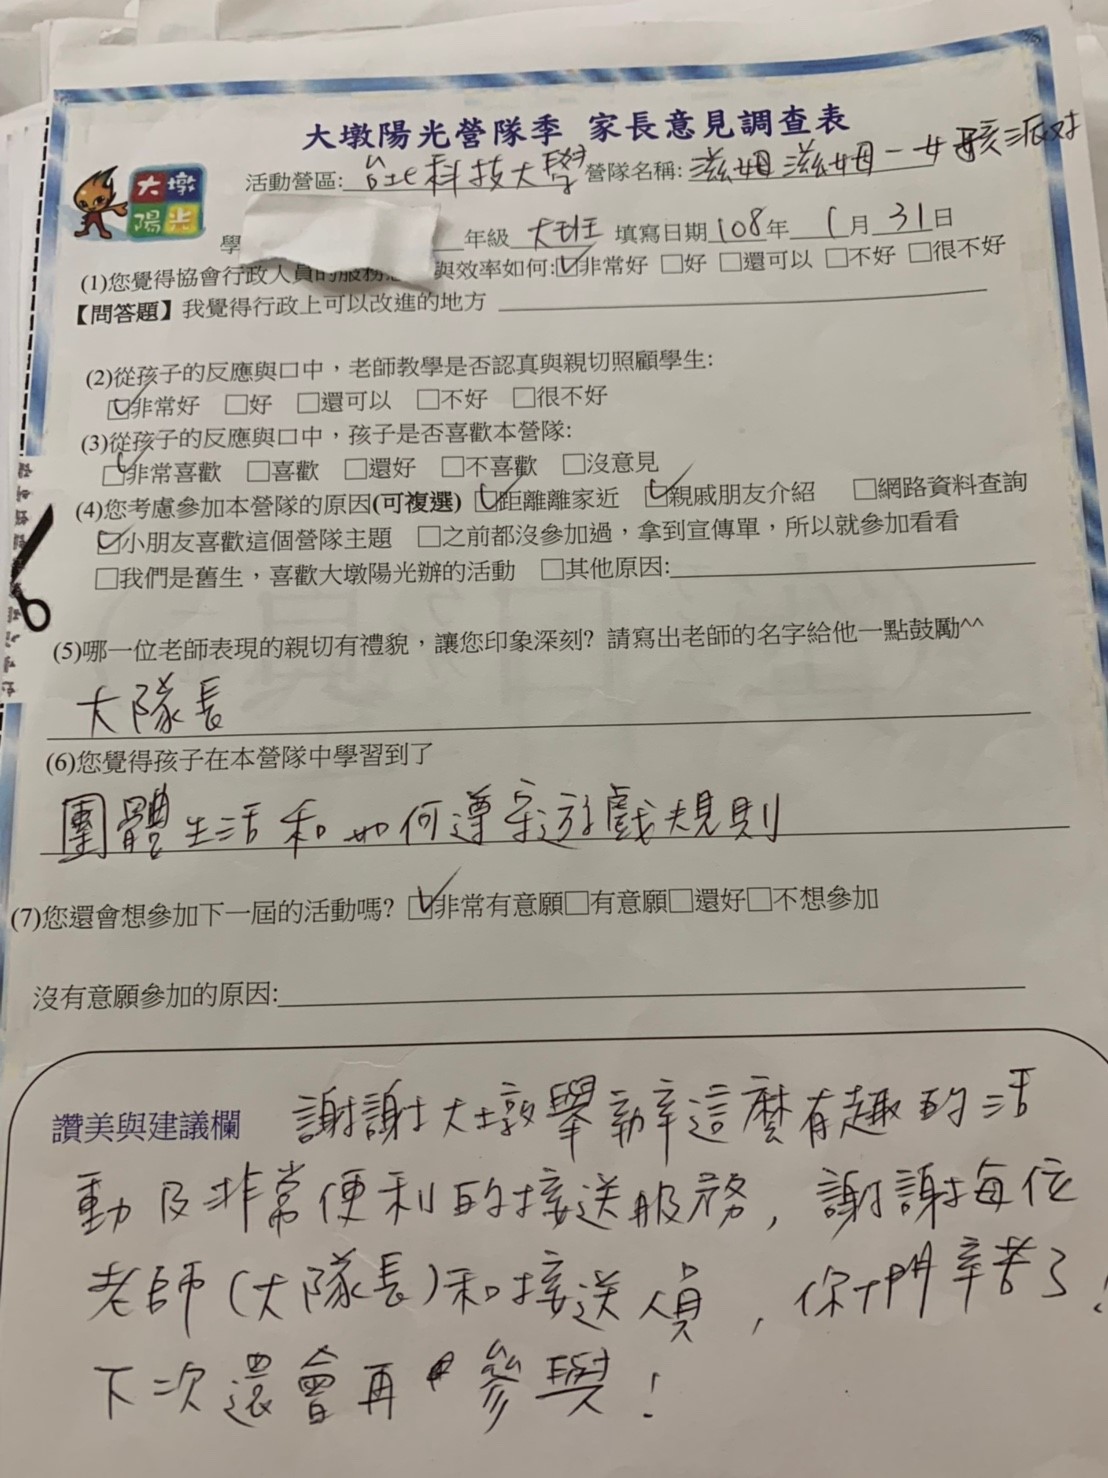 大墩陽光營隊季 家長意見調查表
大墩
陽光
活動營區:台北科技大學營隊名稱:滋姆滋姆-女孩派对
學 年級 大班 填寫日期108年 1月 31日
(1)您覺得協會行政人員的服務 與效率如何:☑非常好 □好 □還可以 □不好 □很不好
【問答題】我覺得行政上可以改進的地方
(2)從孩子的反應與口中，老師教學是否認真與親切照顧學生:
☑非常好 □好 □還可以 □不好 □很不好
(3)從孩子的反應與口中，孩子是否喜歡本營隊:
☑非常喜歡 □喜歡 □還好 □不喜歡 □沒意見
(4)您考慮參加本營隊的原因(可複選) ☑距離離家近 ☑親戚朋友介紹 □網路資料查詢
☑小朋友喜歡這個營隊主題 □之前都沒參加過，拿到宣傳單，所以就參加看看
□我們是舊生，喜歡大墩陽光辦的活動 □其他原因:
(5)哪一位老師表現的親切有禮貌，讓您印象深刻? 請寫出老師的名字給他一點鼓勵^^
大隊長
(6)您覺得孩子在本營隊中學習到了
團體生活和如何遵守遊戲規則
(7)您還會想參加下一屆的活動嗎? ☑非常有意願□有意願□還好□不想參加
沒有意願參加的原因:
讚美與建議欄 謝謝大墩舉辦這麼有趣的活
動及非常便利的接送服務，謝謝每位
老師(大隊長)和接送人員，你們辛苦了!
下次還會再參與!